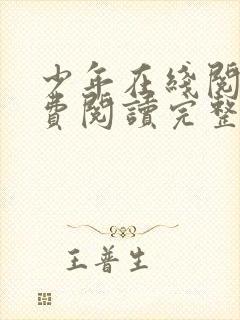 少年在綫閱
費閱讀完整
王普生